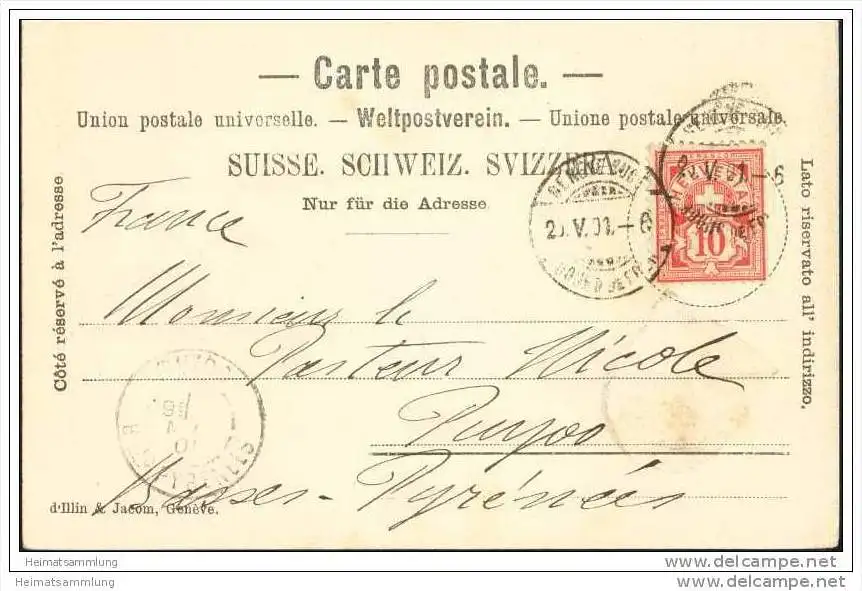 — Carte postale. —
Union postale universelle. — Weltpostverein. — Unione postale universale.
SUISSE. SCHWEIZ. SVIZZERA
Nur für die Adresse.
Côté réservé à l'adresse
Lato riservato all' indirizzo.
HELVETIA
10
V.01.–6
France
Monsieur le
Pasteur Nicole
Puyoo
Basses-Pyrénées
d'Illin & Jacom, Genève.
Heimatsammlung
Heimatsammlung
www.delcampe.net
www.delcampe.net